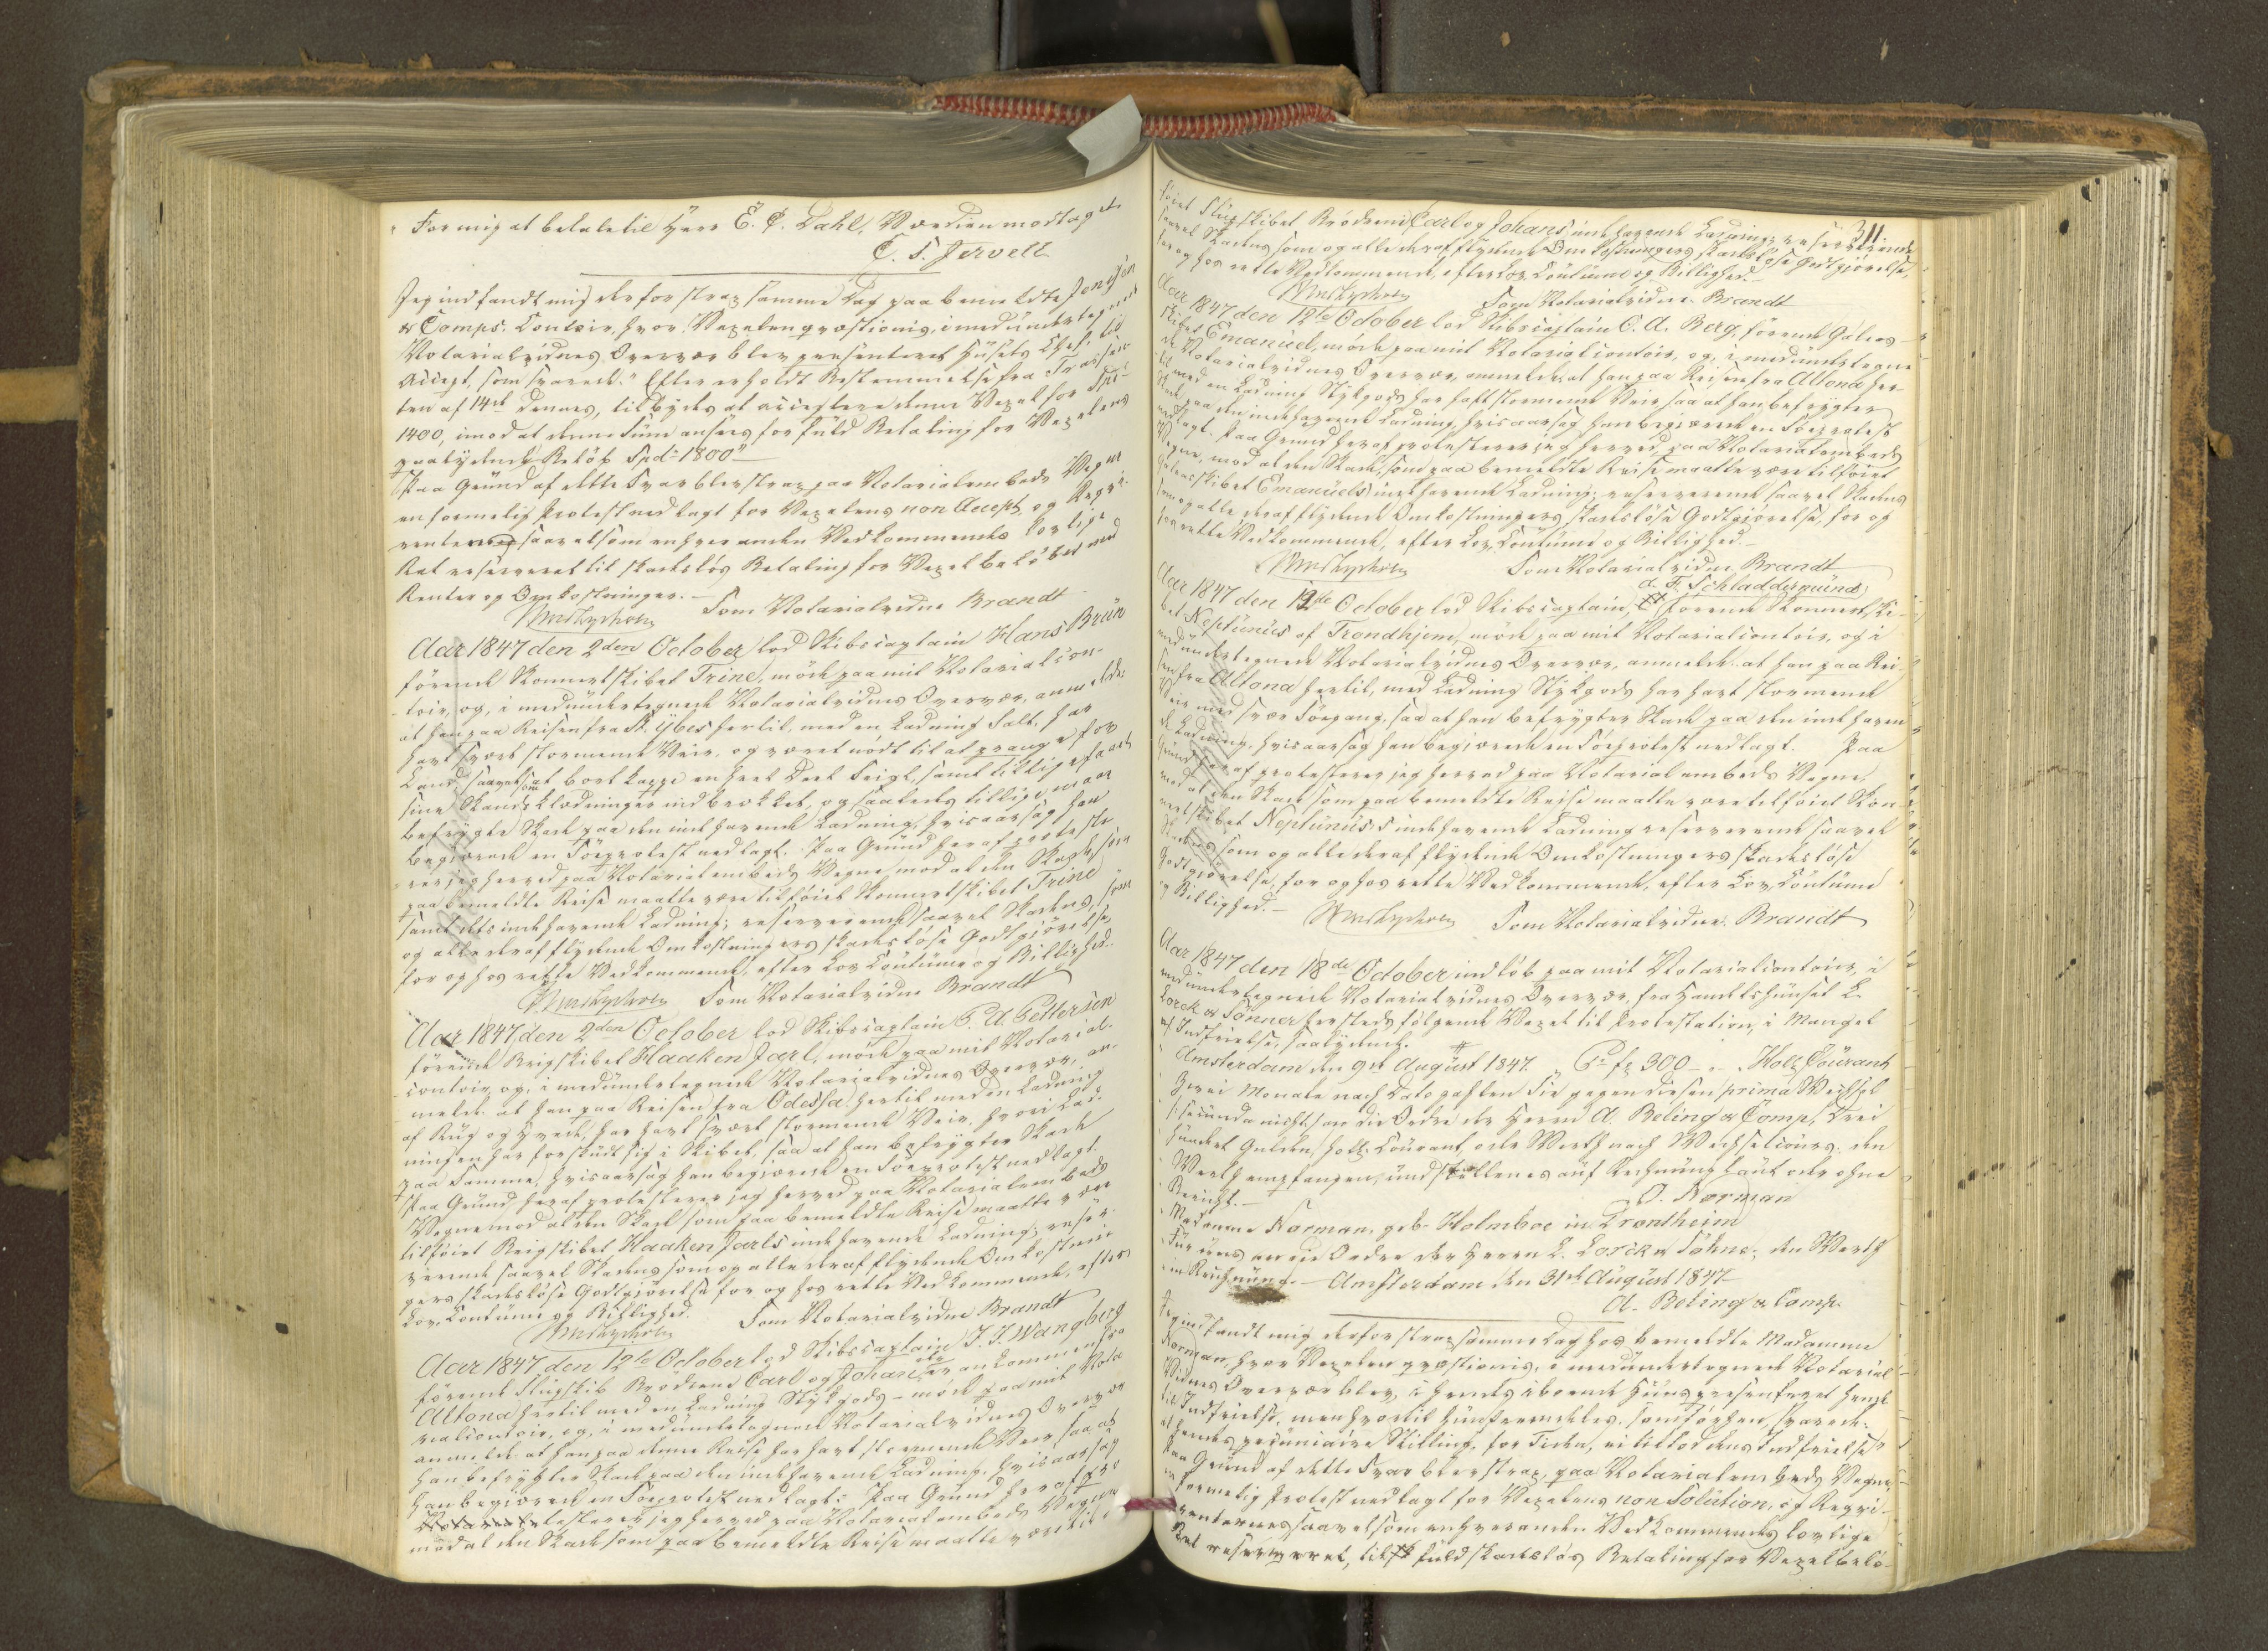 " For mig at betale til Herr E. C. Dahl, Værdien modtaget.
C. S. Jervell
Jeg indfandt mig derfor strax samme Dag paa bemeldte Jenssen
& Comps. Contoir, hvor Vexelen qvæstionis, i medundertegnede
Notarialvidnes Overvær blev præsenteret Husets Chef, til
Accept, som svarede: "Efter erholdt Bestemmelse fra Trassen-
ten af 14de dennes, tilbydes at acceptere denne Vexel for Spd.
1400, imod at denne Sum ansees for fuld Betaling for Vexelens
paalydende Beløb Spd. 1800"
Paa Grund af dette Svar blev strax paa Notarialembeds Vegne
en formelig Protest nedlagt for Vexelens non Accept, og Reqvi-
rentens saavelsom enhver anden Vedkommendes lovlige
Ret reserveret til skadesløs Betaling for Vexelbeløbet med
Renter og Omkostninger. -
Som Notarialvidne Brandt
Aar 1847 den 2den October lod Skibscaptain Hans Brun
førende Skonnertskibet Trine, møde paa mit Notarialcon-
toir, og, i medundertegnede Notarialvidnes Overvær, anmelde:
at han paa Reisen fra St. Ybes hertil, med en Ladning Salt, har
havt svært stormende Veir, og været nødt til at prange for
Land, saavelsom at bortkappe en heel Deel Seigl, samt tilligefaaet
sine Skandsklædninger indbrækket, og saaledes tillige maae
befrygte Skade paa den indehavende Ladning, hvisaarsag han
begjærede en Søeprotest nedlagt. Paa Grund heraf proteste-
rer jeg herved paa Notarialembeds Vegne mod al den Skade, som
paa bemeldte Reise maatte være tilføiet Skonnertskibet Trine
samt dets indehavende Ladning; reserverende saavel Skadens, som
og alle deraf flydende Omkostningers skadesløse Godtgjørelse,
for og hos rette Vedkommende, efter Lov Coutume og Billighed.
Som Notarialvidne Brandt
Aar 1847 den 2den October lod Skibscaptain P. A. Pettersen
førende Brigskibet Haaken Jarl, møde paa mit Notarial-
contoir, og, i medundertegnede Notarialvidnes Overvær, an-
melde: at han paa Reisen fra Odessa hertil med en Ladning
af Rug og Hvede, har havt svært stormende Veir, hvori Lad-
ningen har forskudt sig i Skibet, saa at han befrygter Skade
paa Samme, hvisaarsag han begjærede en Søeprotest nedlagt.
Paa Grund heraf protesterer jeg herved paa Notarialembeds
Vegne mod al den Skade som paa bemeldte Reise maatte være
tilføiet Brigskibet Haaken Jarls indehavende Ladning; reser-
verende saavel Skadens som og alle deraf flydende Omkostnin-
gers skadesløse Godtgjørelse for og hos rette Vedkommende, efter
Lov, Coutume og Billighed.
Som Notarialvidne Brandt
Aar 1847 den 12te October lod Skibscaptain J. J. Wangberg
førende Slupskib Brødrene Carl og Johan, ankommen fra
Altona hertil med en Ladning Stykgods - møde paa mit Nota-
rialcontoir, og, i medundertegnede Notarialvidnes Overvær
anmelde: at han paa denne Reise har havt stormende Veir saa at
han befrygter Skade paa den indehavende Ladning, hvisaarsag
han begjærede en Søeprotest nedlagt: Paa Grund heraf pro-
testerer jeg herved paa Notarialembeds Vegne
mod al den Skade som paa bemeldte Reise maatte være til-
311.
føiet Slupskibet Brødrene Carl og Johans indehavende Ladning; reserverende
saavel Skadens som og alle deraf flydende Omkostningers skadesløse Godtgjørelse,
for og hos rette Vedkommende, efter Lov Coutume og Billighed. -
Som Notarialvidne Brandt
Aar 1847 den 12te October lod Skibscaptain C. A. Berg, førende Galeas-
skibet Emanuel, møde paa mit Notarialcontoir, og, i medundertegne-
de Notarialvidnes Overvær, anmelde: at han paa Reisen fra Altona her-
til med en Ladning Stykgods har havt stormende Veir saa at han befrygter
Skade paa den indehavende Ladning, hvisaarsag han begjærede en Søeprotest
nedlagt. Paa Grund heraf protesterer jeg herved, paa Notarialembeds
Vegne, mod al den Skade, som paa bemeldte Reise maatte være tilføiet
Galeasskibet Emanuels indehavende Ladning; reserverende saavel Skadens
som og alle deraf flydende Omkostningers skadesløse Godtgjørelse, for og
hos rette Vedkommende, efter Lov, Coutume og Billighed. -
Som Notarialvidne Brandt
A. F. Schladdermund
Aar 1847 den 12de October lod Skibscaptain, førende Skonnertski-
bet Neptunus af Trondhjem, møde paa mit Notarialcontoir, og i
medundertegnede Notarialvidnes Overvær, anmelde: at han paa Rei-
sen fra Altona hertil, med Ladning Stykgods har havt stormende
Veir med svær Søegang, saa at han befrygter Skade paa den indehaven-
de Ladning, hvisaarsag han begjærede en Søeprotest nedlagt. Paa
Grund heraf protesterer jeg herved paa Notarialembeds Vegne,
mod al den Skade som paa bemeldte Reise maatte være tilføiet Skon-
nertskibet Neptunus's indehavende Ladning reserverende saavel
Skadens som og alle deraf flydende Omkostningers skadesløse
Godtgjørelse, for og hos rette Vedkommende, efter Lov, Coutume
og Billighed. -
Som Notarialvidne Brandt
Aar 1847 den 18de October indløb paa mit Notarialcontoir, i
medundertegnede Notarialvidnes Overvær, fra Handelshuuset L.
Lorck & Sønner hersteds følgende Vexel til Protestation, i Mangel
af Indfrielse, saalydende:
" Amsterdam den 9de August 1847. " Pr fl 300 - " Holl Courant
" Zwei Monate nach Dato zahlen Sie gegen diesen prima Wechsel
" (: secunda nicht :) an die Ordre der Herrn A. Beling & Comp, Drei
" hundert Gulden, holl: Courant, oder Werth nach Wechselcours; den
" Werth empfangen, und stellen es auf Rechnung laut oder ohne
" Bericht. -
O. Norman
" Madamme Norman, geb. Holmboe in Trontheim
" Für uns an die Ordre der Herrn L. Lorck & Söhne; den Werth
" in Rechnung. - Amsterdam den 31de August 1847
A. Beling & Comp.
Jeg indfandt mig derfor strax samme Dag hos bemeldte Madamme
Norman, hvor Vexelen qvæstionis, i medundertegnede Notarial-
Vidnes Overvær blev, i hendes iboende Huus præsenteret hende
til Indfrielse, men hvortil hun fremdeles, som før hen, svarede:
at hendes pecuniaire Stilling, for Tiden, ei tillod dens Indfrielse"
Paa Grund af dette Svar blev strax, paa Notarialembeds Vegne,
en formelig Protest nedlagt for Vexelens non Solution, og Reqvi-
renternes saavelsom enhver anden Vedkommendes lovlige
Ret reserveret, til fuld skadesløs Betaling for Vexelbelø-